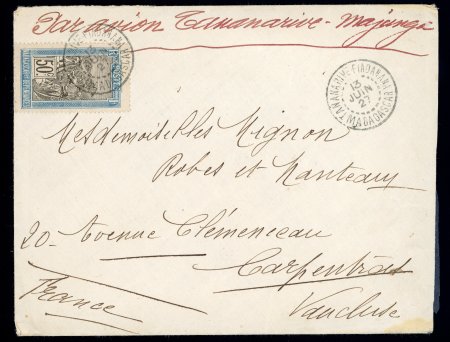 Par avion Tananarive - Majunga
50
TANANARIVE FIADANANA
13
JUIN
27
MADAGASCAR
Mesdemoiselles Mignon
Robes et Manteaux
20 - Avenue Clémenceau
Carpentras
France
Vaucluse